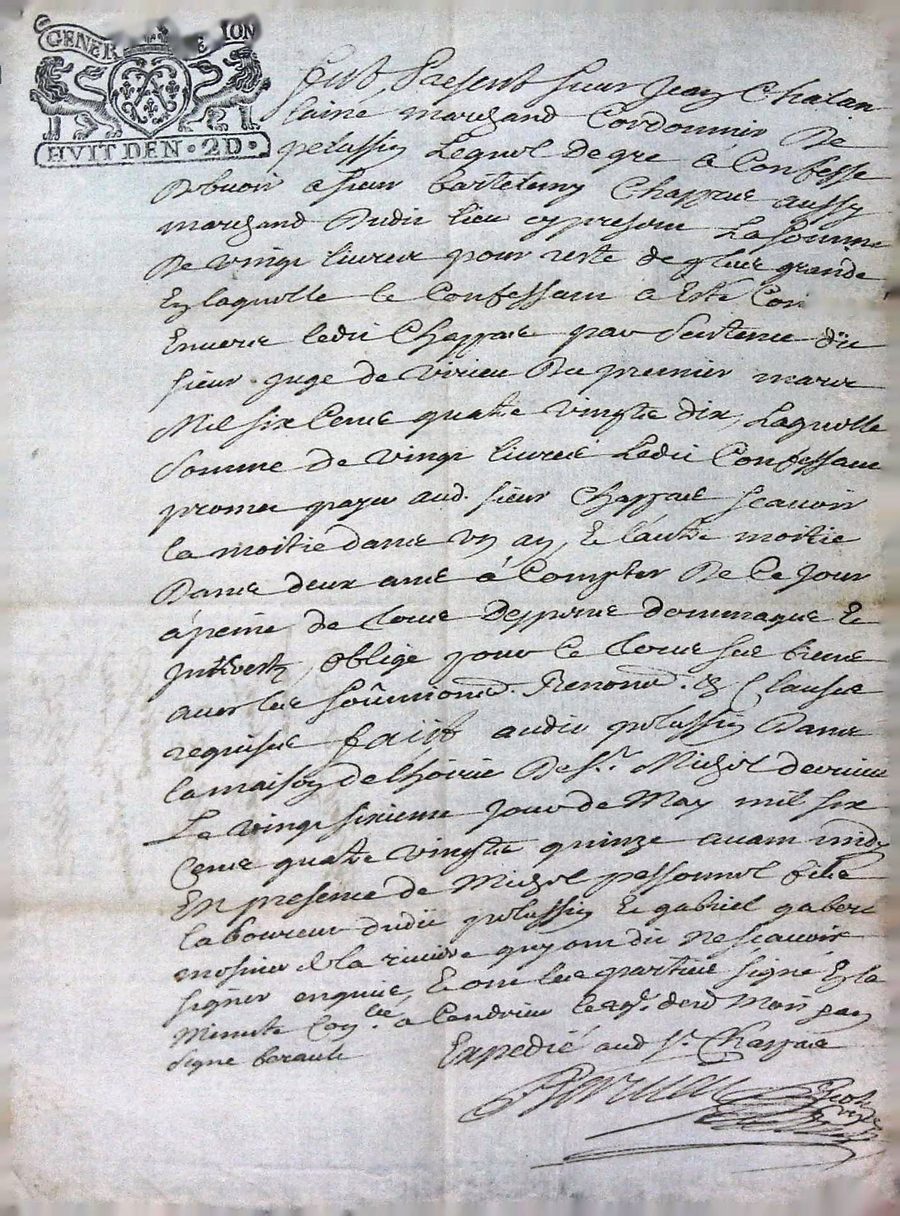 GENER ION
HVIT DEN · 2D ·
fut Present sieur Jean Chalan
laine marchand Cordonnier De
pelussin Lequel De gre à Confesse
Debuoir a sieur bartelemy Chappuis aussy
marchand Dudit lieu cy present La somme
De vingt livres pour reste de plus grande
En laquelle le Confessant a Esté Con
Enuers ledit Chappuis par Sentence du
sieur juge de Virieu Du premier mars
Mil six Cens quatre vingts dix, Laquelle
Somme de vingt livres Ledit Confessant
promet payer aud. sieur Chappuis scauoir
la moitié dans un an, E l'autre moitié
Dans deux ans à Compter De Ce Jour
à peine de tous Despens dommages Et
Interests, oblige pour Ce tous ses biens
auec les soûmiond. Renond. & Clauses
requises faict audit pelussin Dans
la maison de l'hoirie De Sr. Michel
Le vingt sixieme Jour de May mil six
Cens quatre vingts quinze auant midy
En presence de Michel pessonnel fils
laboureur dudit pelussin Et gabriel gabert
mosnier de la riuiere quy ont dit ne scauoir
signer enquis, Et ont les parties signé En la
Minute Con.lee a Condrieu le dud Mois par
signe berault
Expedié aud sr. Chappuis